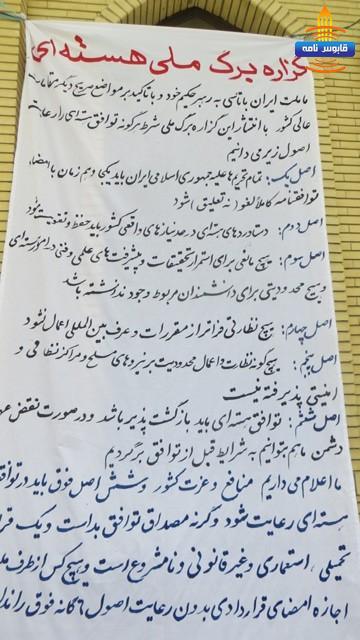 قابوس نامه
گزاره برگ ملی هسته ای
ما ملت ایران با تاسی به رهبر حکیم خود و با تاکید بر مواضع صریح دیگر مقامات
عالی کشور با انتشار این گزاره برگ ملی شرط هرگونه توافق هسته ای را رعایت
اصول زیر می دانیم
اصل یک: تمام تحریم ها علیه جمهوری اسلامی ایران باید یکجا و هم زمان با امضاء
توافقنامه کاملا لغو (نه تعلیق) شود
اصل دوم: دستاوردهای هسته ای در حد نیازهای واقعی کشور باید حفظ و تقویت شود
اصل سوم: هیچ مانعی برای استمرار تحقیقات و پیشرفت های علمی و فنی در امور هسته ای
و هیچ محدودیتی برای دانشمندان مربوط وجود نداشته باشد
اصل چهارم: هیچ نظارتی فراتر از مقررات و عرف بین المللی اعمال نشود
اصل پنجم: هیچگونه نظارت و اعمال محدودیت بر نیروهای مسلح و مراکز نظامی و
امنیتی پذیرفته نیست
اصل ششم: توافق هسته ای باید بازگشت پذیر باشد و در صورت نقض عهد
دشمن ما هم بتوانیم به شرایط قبل از توافق برگردیم
ما اعلام می داریم منافع و عزت کشور و شش اصل فوق باید در توافق
هسته ای رعایت شود وگرنه مصداق توافق بد است و یک قرا
تحمیلی، استعماری و غیرقانونی و نامشروع است و هیچ کس از طرف ملت
اجازه امضای قراردادی بدون رعایت اصول ۶ گانه فوق را ندارد